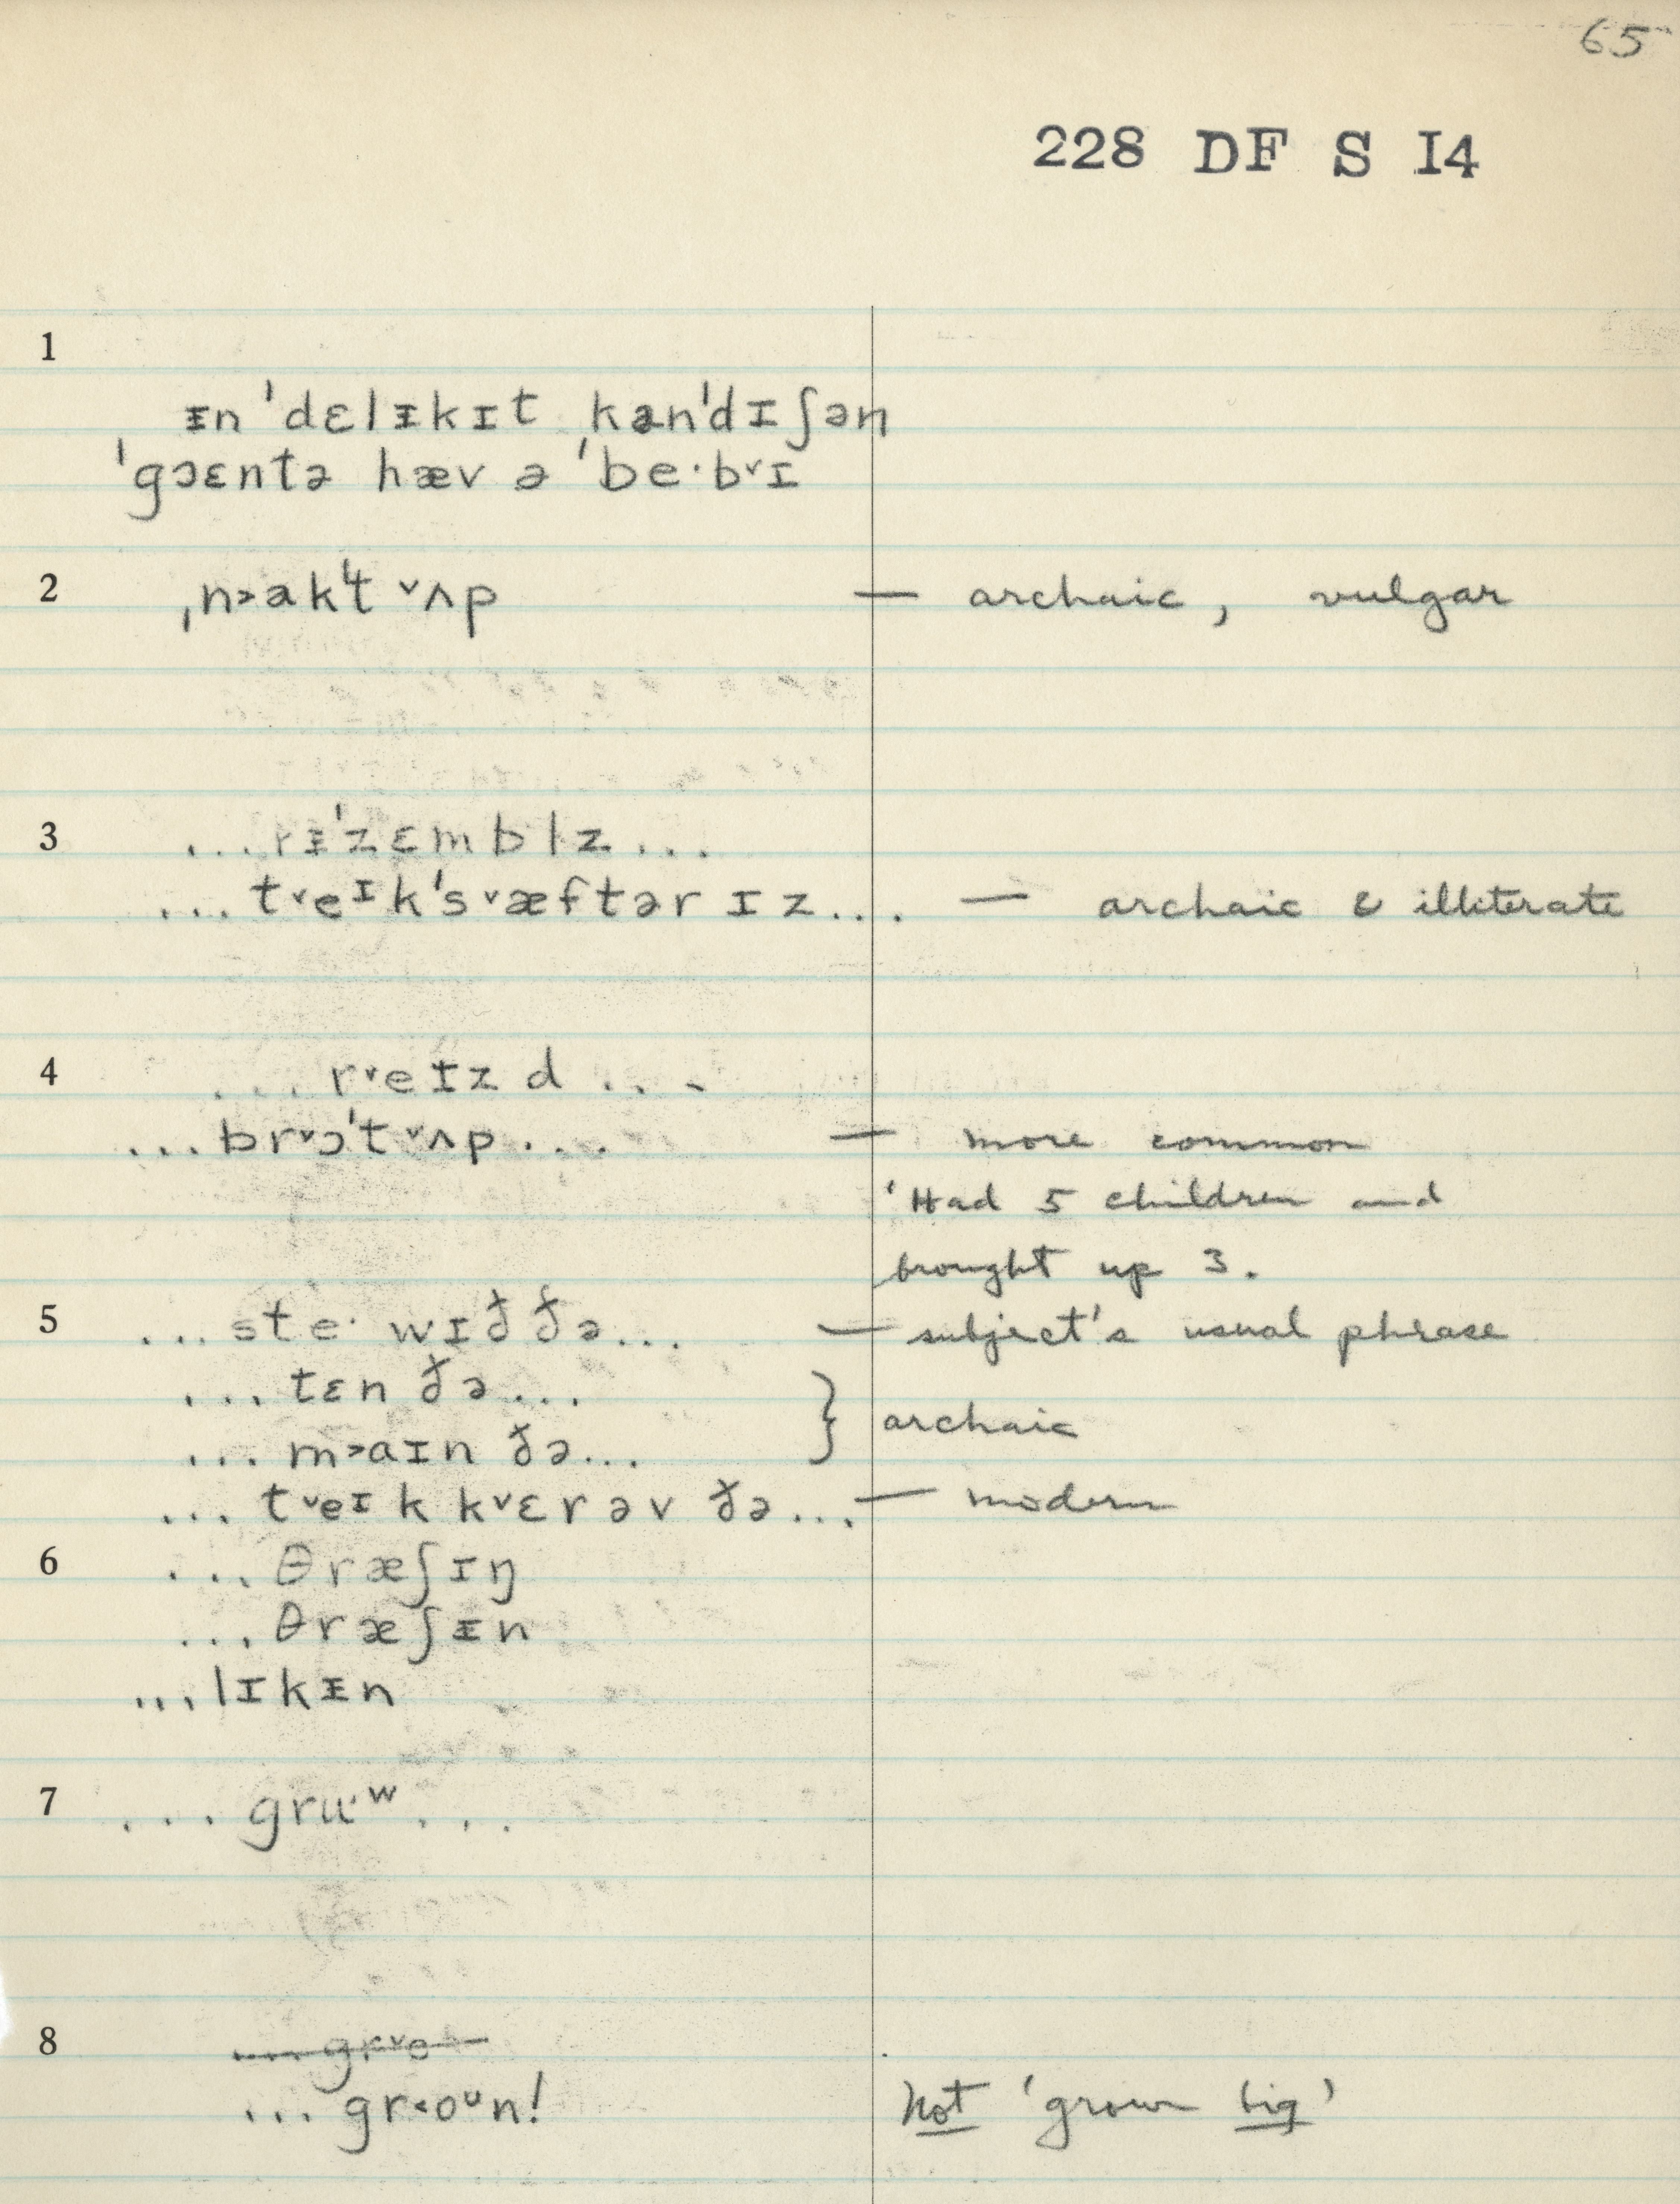 65
228 DF S I4
1
ᵻn ˈdɛlᵻkɪt kənˈdɪʃən
ˈgɔɛntə hæv ə ˈbe·b˅ɪ
2 ˌn˃akˈt ˅ʌp — archaic, vulgar
3 ...rᵻˈzɛmblz...
...t˅eᶦkˈs˅æftər ɪz.... — archaic & illiterate
4 ...r˅eɪzd...
...br˅ɔˈt˅ʌp.... — more common
'Had 5 children and
brought up 3.
5 ...ste· wɪð ðə... — subject's usual phrase
...tɛn ðə...
} archaic
...m˃aɪn ðə...
...t˅eᶦk k˅ɛr əv ðə... — modern
6 ...θræʃɪŋ
...θræʃᵻn
...lɪkᵻn
7 ...gru·ʷ...
8 ... gr˅o
...gr˂oᶷn! Not 'grown big'